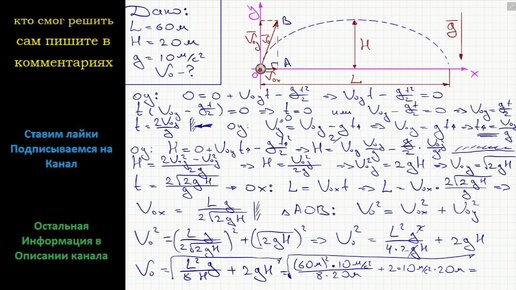 кто смог решить
сам пишите в
комментариях
Ставим лайки
Подписываемся на
Канал
Остальная
Информация в
Описании канала
Дано:
L = 60м
H = 20м
g = 10 м/с²
V₀ - ?
y
B
V₀y
V₀
A
V₀x
H
L
x
g
оу: 0 = 0 + V₀y t - gt²/2 => V₀y t - gt²/2 = 0
t (V₀y - gt/2) = 0 => t = 0 или V₀y - gt/2 = 0 => V₀y = gt/2
t = 2V₀y/g
оу: H = 0 + V₀y t₁ - gt₁²/2
H = 2V₀y² - V₀y²/2g => H = V₀y²/2g => V₀y² = 2gH => V₀y = √2gH
t = 2√2gH/g → ox: L = V₀x t => L = V₀x · 2√2gH/g =>
V₀x = L g/2√2gH ΔAOB: V₀² = V₀x² + V₀y²
V₀² = (L g/2√2gH)² + (√2gH)² => V₀² = L² g²/4·2gH + 2gH
V₀ = √L² g/8 H + 2gH = √(60м)²·10м/с²/8·20м + 2·10м/с²·20м =